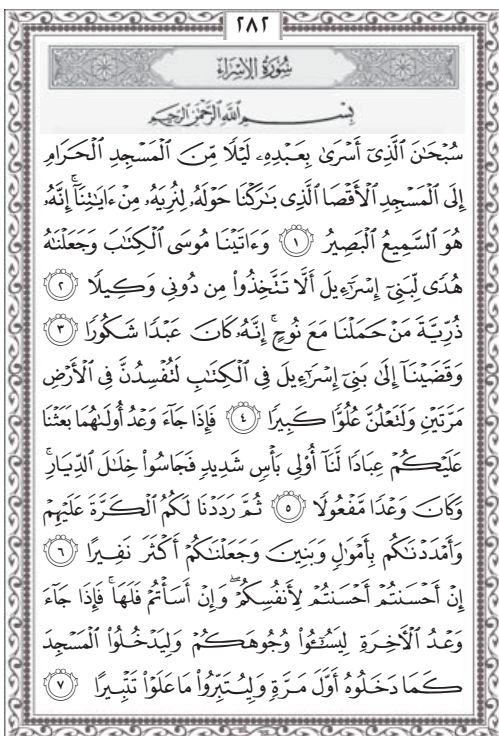 ٢٨٢
سُورَةُ الإِسْرَاءِ
بِسْمِ ٱللَّهِ ٱلرَّحْمَٰنِ ٱلرَّحِيمِ
سُبْحَٰنَ ٱلَّذِىٓ أَسْرَىٰ بِعَبْدِهِۦ لَيْلًا مِّنَ ٱلْمَسْجِدِ ٱلْحَرَامِ
إِلَى ٱلْمَسْجِدِ ٱلْأَقْصَا ٱلَّذِى بَٰرَكْنَا حَوْلَهُۥ لِنُرِيَهُۥ مِنْ ءَايَٰتِنَآۚ إِنَّهُۥ
هُوَ ٱلسَّمِيعُ ٱلْبَصِيرُ ۝١ وَءَاتَيْنَا مُوسَى ٱلْكِتَٰبَ وَجَعَلْنَٰهُ
هُدًى لِّبَنِىٓ إِسْرَٰٓءِيلَ أَلَّا تَتَّخِذُوا۟ مِن دُونِى وَكِيلًا ۝٢
ذُرِّيَّةَ مَنْ حَمَلْنَا مَعَ نُوحٍۚ إِنَّهُۥ كَانَ عَبْدًا شَكُورًا ۝٣
وَقَضَيْنَآ إِلَىٰ بَنِىٓ إِسْرَٰٓءِيلَ فِى ٱلْكِتَٰبِ لَتُفْسِدُنَّ فِى ٱلْأَرْضِ
مَرَّتَيْنِ وَلَتَعْلُنَّ عُلُوًّا كَبِيرًا ۝٤ فَإِذَا جَآءَ وَعْدُ أُولَىٰهُمَا بَعَثْنَا
عَلَيْكُمْ عِبَادًا لَّنَآ أُو۟لِى بَأْسٍ شَدِيدٍ فَجَاسُوا۟ خِلَٰلَ ٱلدِّيَارِۚ
وَكَانَ وَعْدًا مَّفْعُولًا ۝٥ ثُمَّ رَدَدْنَا لَكُمُ ٱلْكَرَّةَ عَلَيْهِمْ
وَأَمْدَدْنَٰكُم بِأَمْوَٰلٍ وَبَنِينَ وَجَعَلْنَٰكُمْ أَكْثَرَ نَفِيرًا ۝٦
إِنْ أَحْسَنتُمْ أَحْسَنتُمْ لِأَنفُسِكُمْۖ وَإِنْ أَسَأْتُمْ فَلَهَاۚ فَإِذَا جَآءَ
وَعْدُ ٱلْءَاخِرَةِ لِيَسُۥٓـُٔوا۟ وُجُوهَكُمْ وَلِيَدْخُلُوا۟ ٱلْمَسْجِدَ
كَمَا دَخَلُوهُ أَوَّلَ مَرَّةٍ وَلِيُتَبِّرُوا۟ مَا عَلَوْا۟ تَتْبِيرًا ۝٧